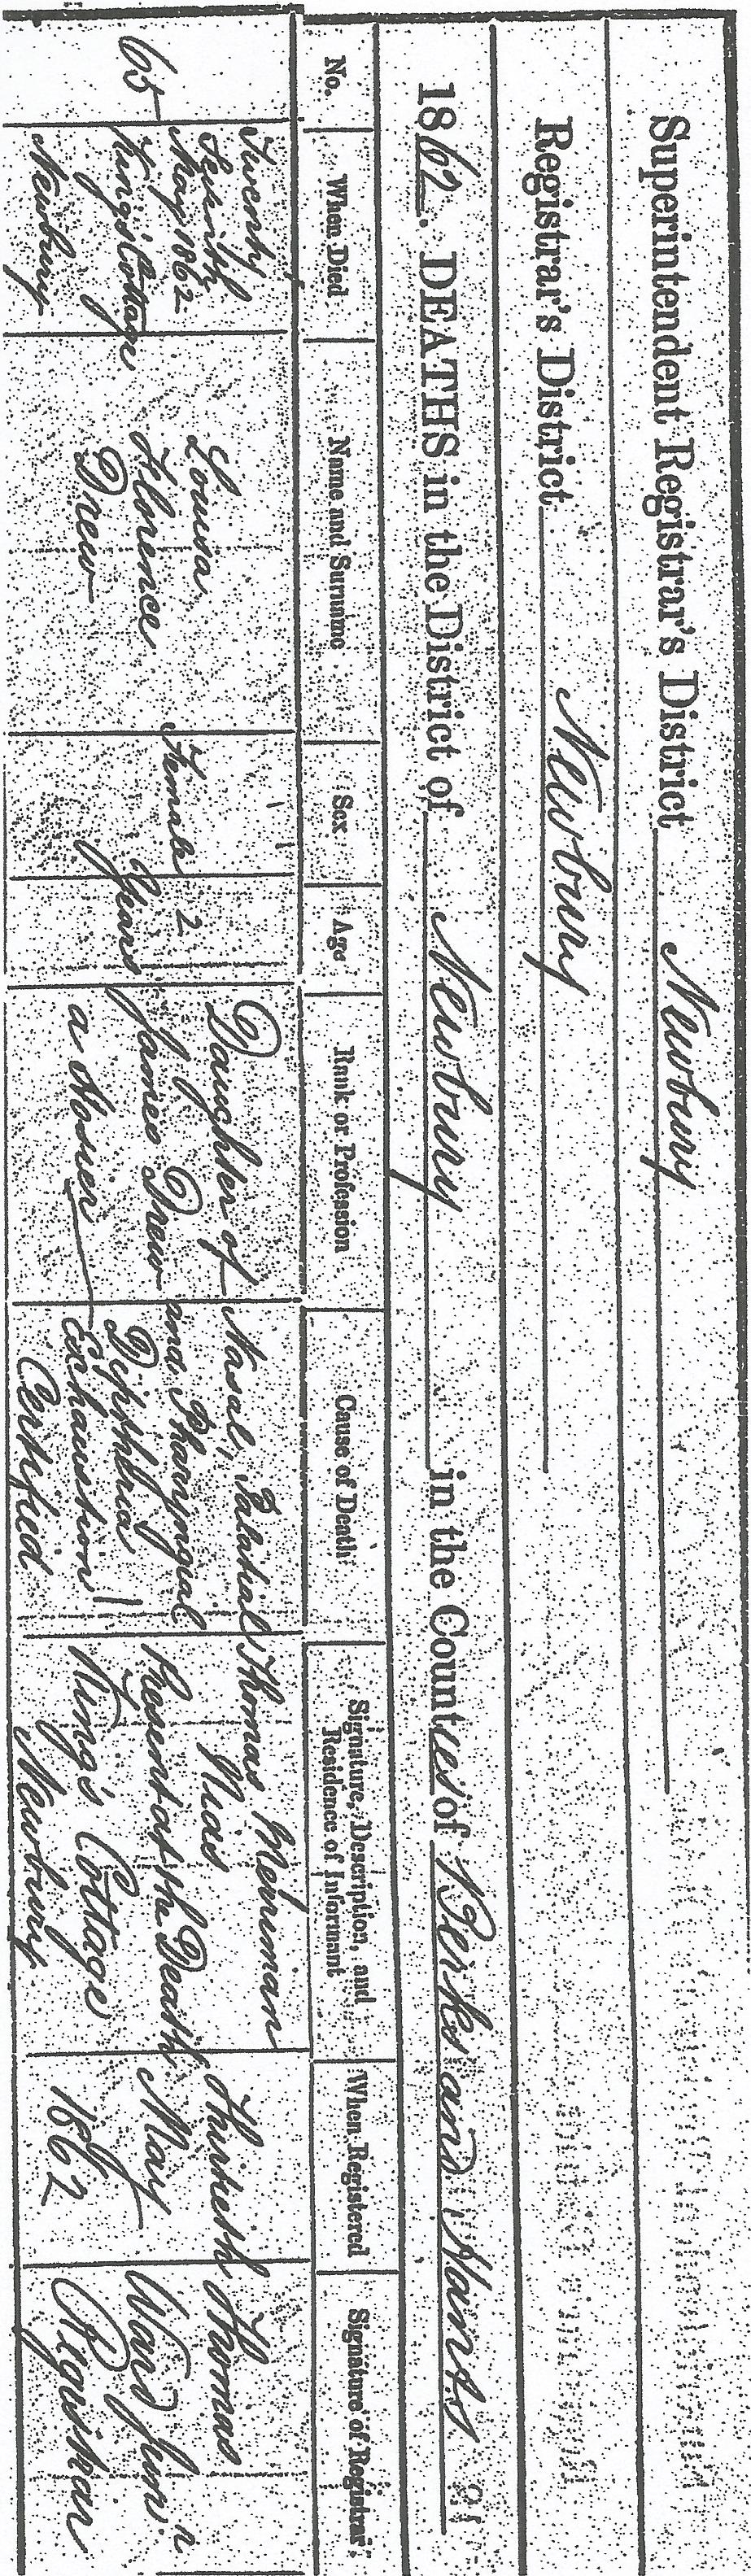 Superintendent Registrar's District Newbury
Registrar's District Newbury
1862. DEATHS in the District of Newbury in the Counties of Berks and Hants
No.
When Died
Name and Surname
Sex
Age
Rank or Profession
Cause of Death
Signature, Description, and
Residence of Informant
When Registered
Signature of Registrar
65
Twenty
Seventh
May 1862
King's Cottage
Newbury
Louisa
Florence
Drew
Female
2
Years
Daughter of
James Drew
a Hosier
Nasal, Palatial
and Pharyngial
Diphtheria
Exhaustion
Certified
Thomas Merriman
Nias
Present at the Death
King's Cottage
Newbury
Thirtieth
May
1862
Thomas
Ward Junr
Registrar